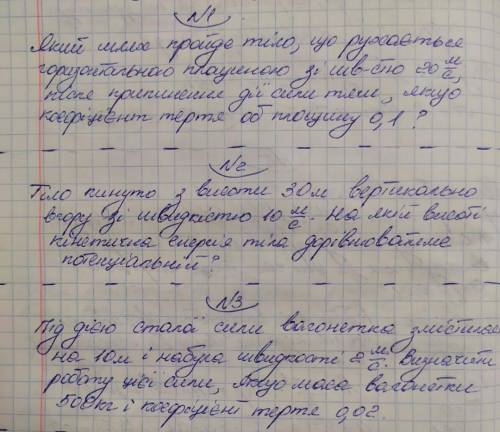 №1
Який шлях пройде тіло, що рухається
горизонтальною площиною зі шв-стю 20 м/с,
після припинення дії сили тяги, якщо
коефіцієнт тертя об площину 0,1?
№2
Тіло кинуто з висоти 30м вертикально
вгору зі швидкістю 10 м/с. На якій висоті
кінетична енергія тіла дорівнюватиме
потенціальній?
№3
Під дією сталої сили вагонетка змістилась
на 10м і набула швидкості 2 м/с. Визначити
роботу цієї сили, якщо маса вагонетки
500кг і коефіцієнт тертя